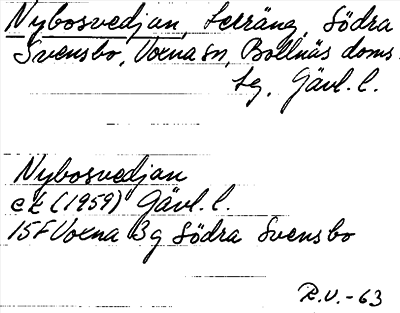 Nybosvedjan, terräng, Södra
Svensbo, Voxna sn, Bollnäs doms.
tg. Gävl. l.
Nybosvedjan
ek (1959) Gävl. l.
15F Voxna 3g Södra Svensbo
R.V.-63